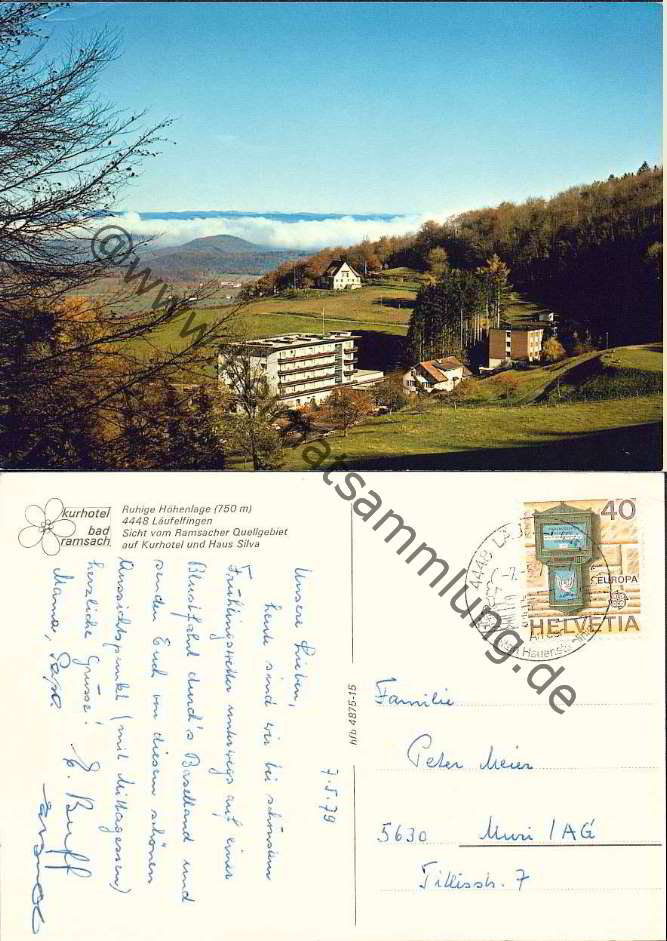 @www.
ratsammlung.de
kurhotel
bad
ramsach
Ruhige Höhenlage (750 m)
4448 Läufelfingen
Sicht vom Ramsacher Quellgebiet
auf Kurhotel und Haus Silva
40
EUROPA
HELVETIA
4448
Hauenst
7.5.79
Unsere Lieben,
heute sind wir bei schönstem
Frühlingswetter unterwegs auf einer
Bluestfahrt durch's Baselland und
senden Euch von diesem schönen
Aussichtspunkt (mit Mittagessen)
herzliche Grüsse!
Mama, Papa
E. Buff
9/4 4875-15
Familie
Peter Meier
5630 Muri/AG
Tillisstr. 7